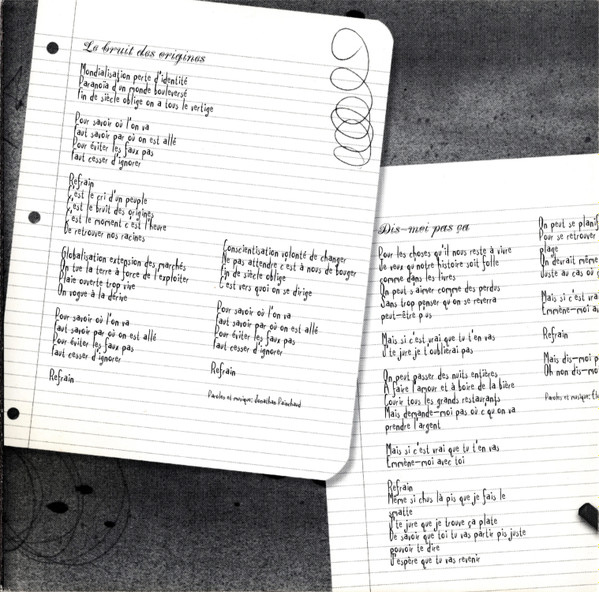 Le bruit des origines
Mondialisation perte d'identité
Paranoïa d'un monde bouleversé
Fin de siècle oblige on a tous le vertige
Pour savoir où l'on va
Faut savoir par où on est allé
Pour éviter les faux pas
Faut cesser d'ignorer
Refrain
C'est le cri d'un peuple
C'est le bruit des origines
C'est le moment c'est l'heure
De retrouver nos racines
Globalisation extension des marchés
On tue la terre à force de l'exploiter
Plaie ouverte trop vive
On vogue à la dérive
Pour savoir où l'on va
Faut savoir par où on est allé
Pour éviter les faux pas
Faut cesser d'ignorer
Refrain
Conscientisation volonté de changer
Ne pas attendre c'est à nous de bouger
Fin de siècle oblige
C'est vers quoi on se dirige
Pour savoir où l'on va
Faut savoir par où on est allé
Pour éviter les faux pas
Faut cesser d'ignorer
Refrain
Paroles et musique: Jonathan Painchaud
Dis-moi pas ça
Pour les choses qu'il nous reste à vivre
Je veux qu'notre histoire soit folle
comme dans les livres
On peut s'aimer comme des perdus
Sans trop penser qu'on se reverra
peut-être plus
Mais si c'est vrai que tu t'en vas
J'te jure je t'oublierai pas
On peut passer des nuits entières
À faire l'amour et à boire de la bière
Courir tous les grands restaurants
Mais demande-moi pas où c'qu'on va
prendre l'argent
Mais si c'est vrai que tu t'en vas
Emmène-moi avec toi
Refrain
Même si chus là pis que je fais le
smatte
J'te jure que je trouve ça plate
De savoir que toi tu vas partir pis juste
pouvoir te dire
J'espère que tu vas revenir
On peut se planif
Pour se retrouver
plage
On devrait même
Juste au cas où
Mais si c'est vrai
Emmène-moi
Refrain
Mais dis-moi p
Oh non dis-mo
Paroles et musique: